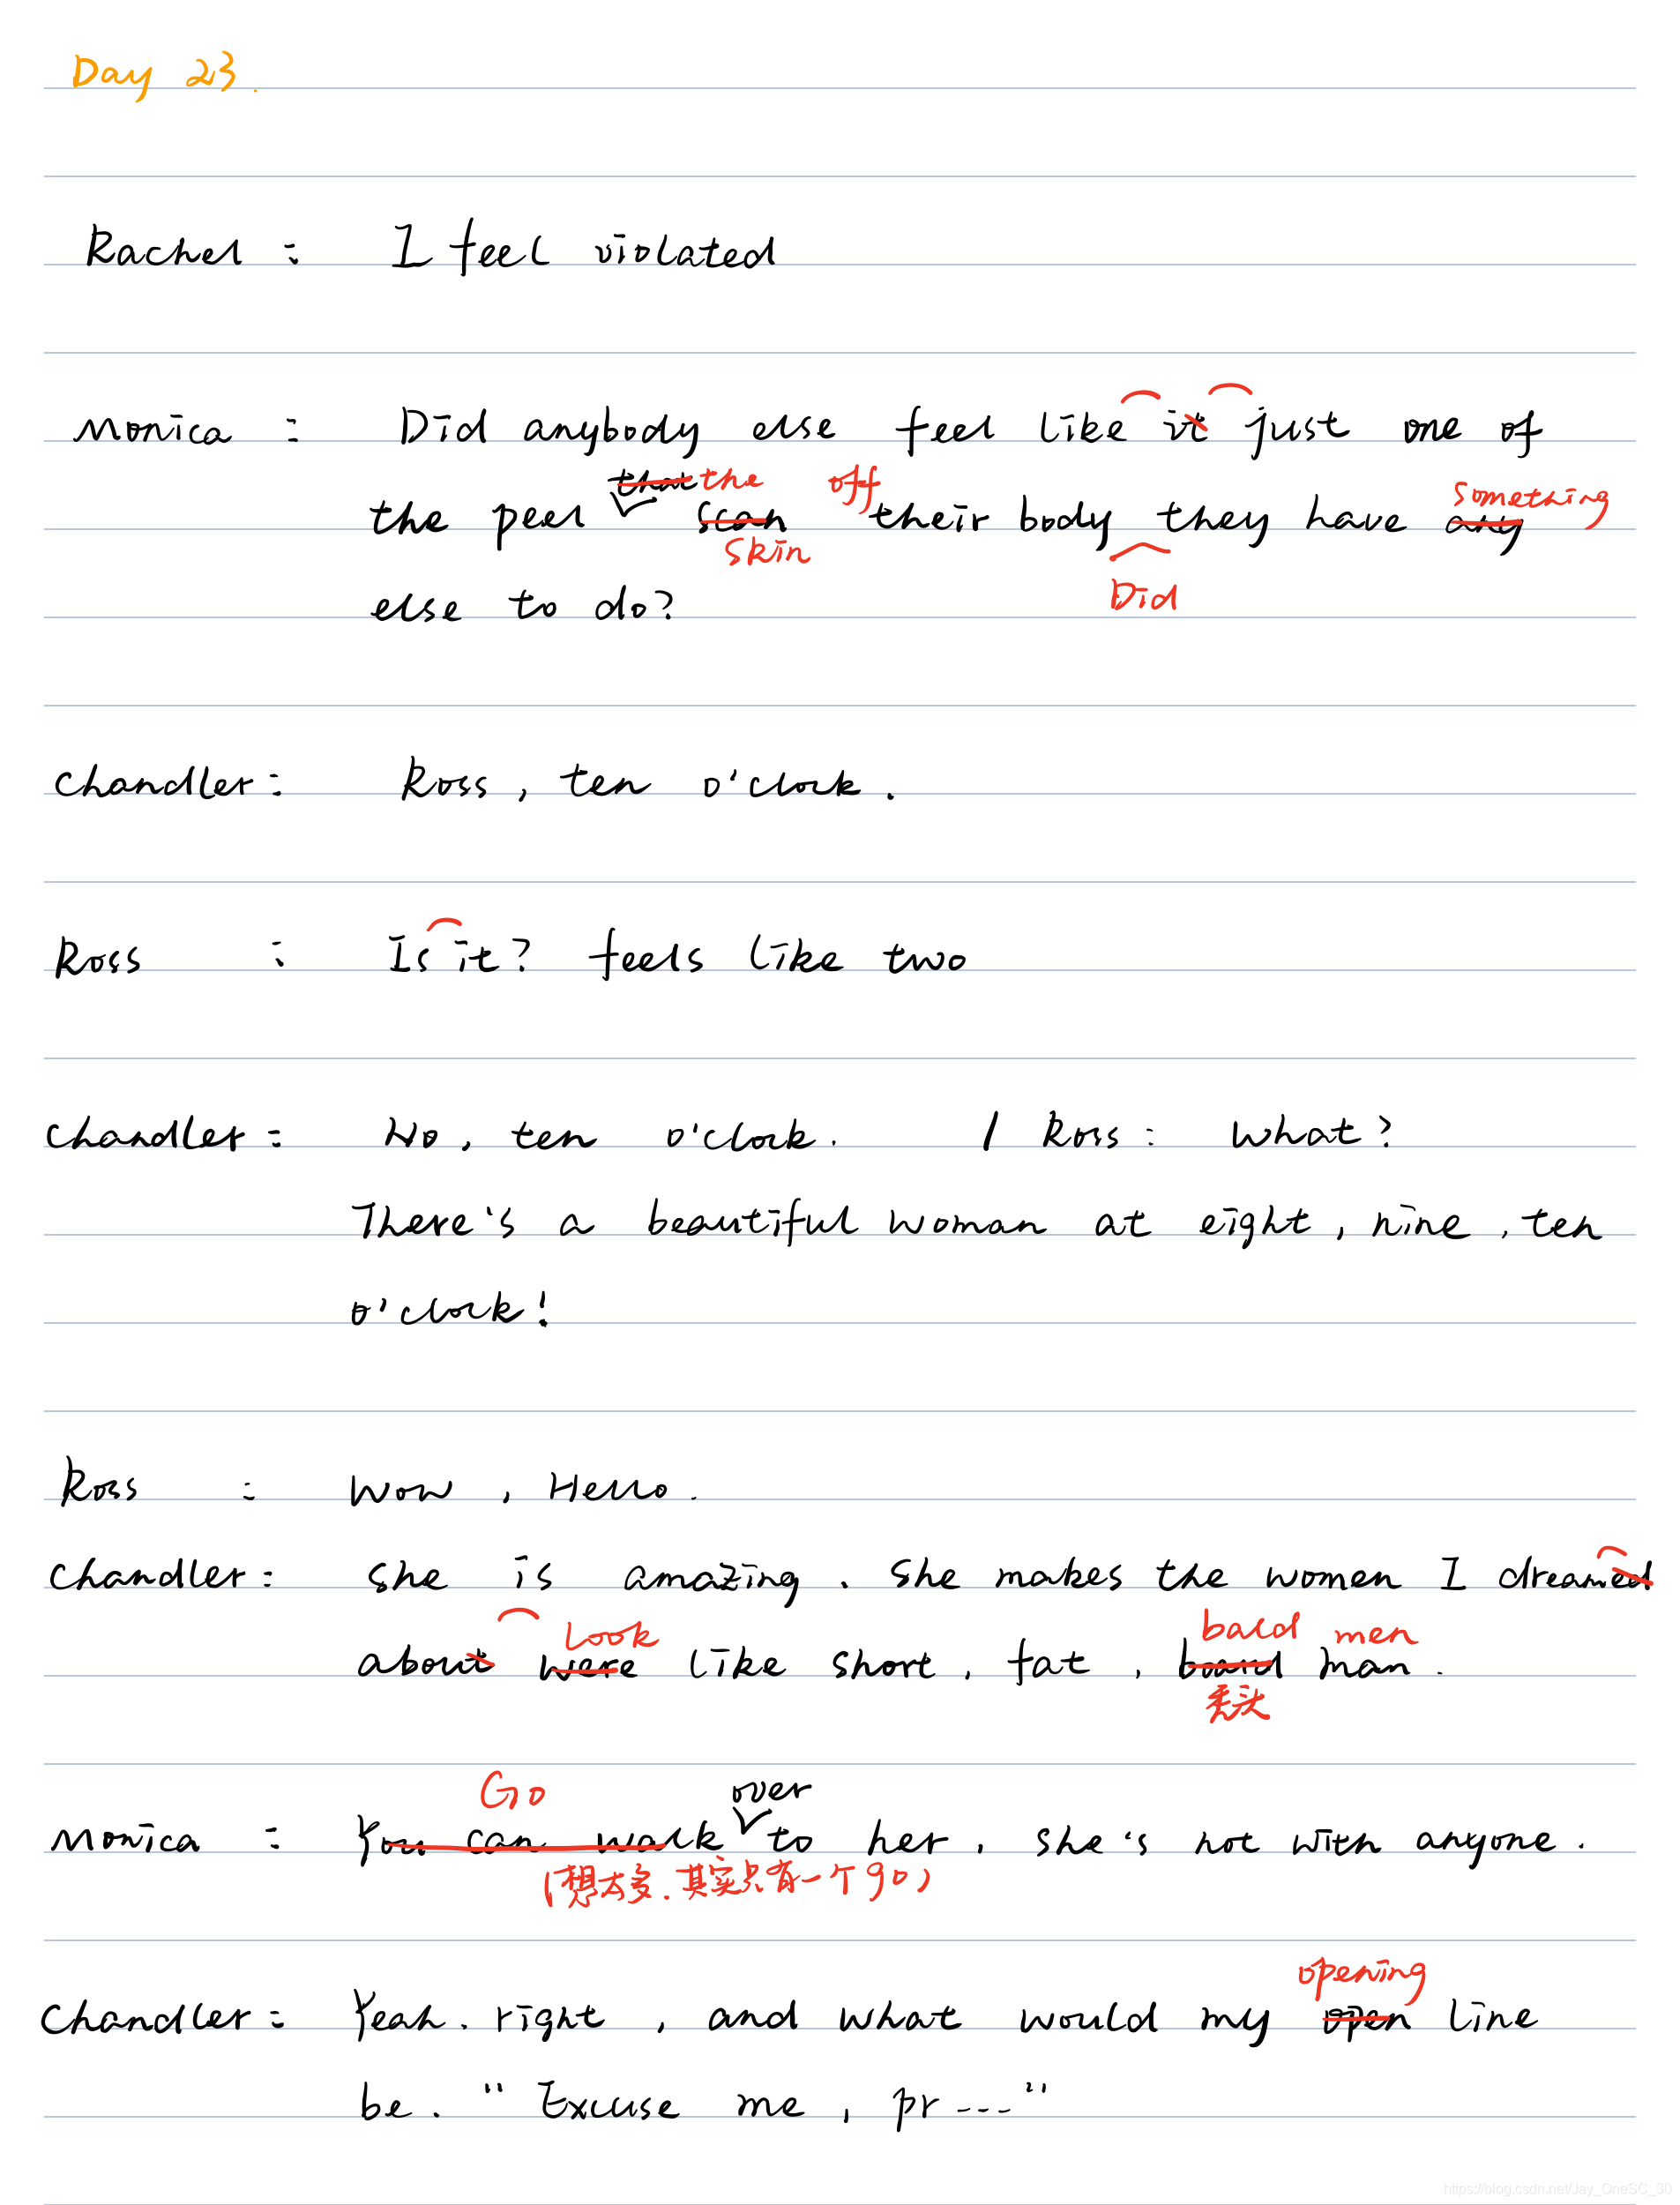 Day 23.
Rachel : I feel violated
Monica : Did anybody else feel like it just one of
that the off something
the peel scan their body they have any
skin Did
else to do?
Chandler : Ross, ten o'clock.
Ross : Is it? feels like two
Chandler : No, ten o'clock. / Ross : What?
There's a beautiful woman at eight, nine, ten
o'clock!
Ross : Wow, Hello.
Chandler : She is amazing. She makes the women I dreamed
look bald men
about were like short, fat, board man.
秃头
Go over
Monica : You can walk to her, she's not with anyone.
(想太多.其实只有一个go)
opening
Chandler : Yeah. right, and what would my open line
be. "Excuse me, pr---"
https://blog.csdn.net/Jay_OneSC_30